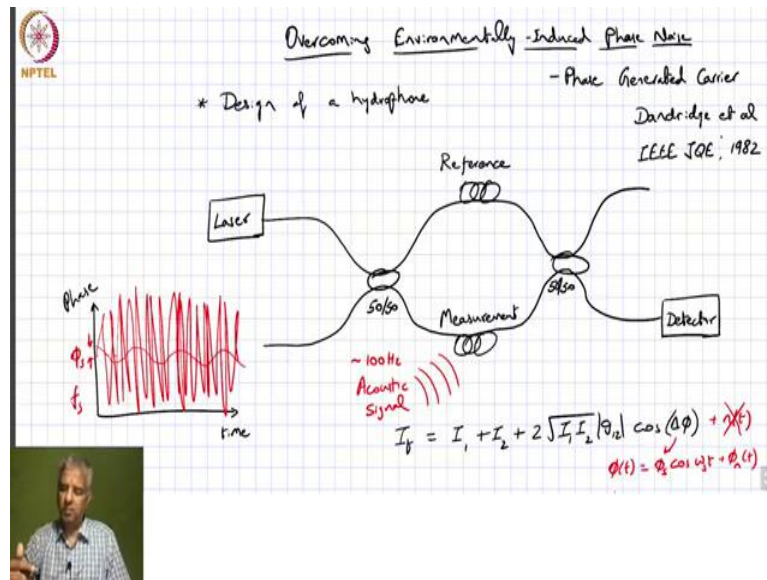 NPTEL
Overcoming Environmentally-Induced Phase Noise
- Phase Generated Carrier
Dandridge et al
IEEE JQE, 1982
* Design of a hydrophone
Reference
Laser
50/50
50/50
Measurement
Detector
Phase
ϕs
fs
time
~100Hz
Acoustic
Signal
I_f = I₁ + I₂ + 2√I₁I₂ |g₁₂| cos(Δϕ) + n(t)
ϕ(t) = ϕs cos ωst + ϕn(t)